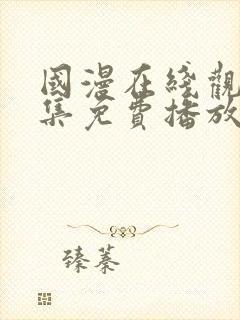 國漫在綫觀
集免費播放
臻蓁